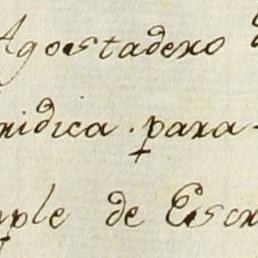 Agostadero
ridica. para
mple de Escr